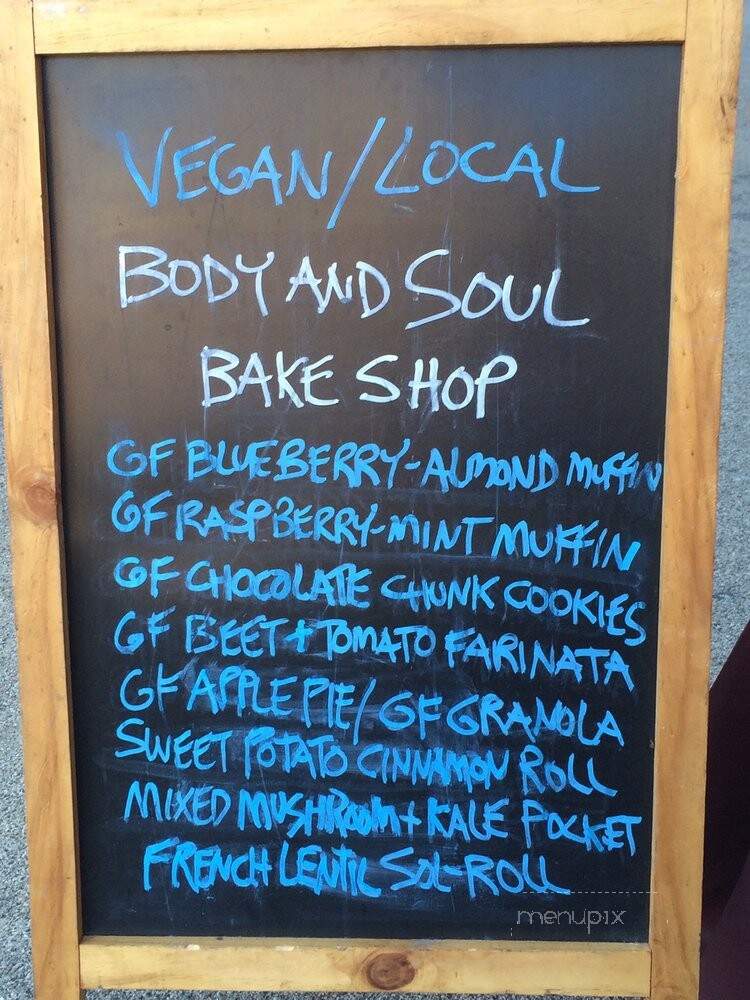 VEGAN/LOCAL
BODY AND SOUL
BAKE SHOP
GF BLUEBERRY-ALMOND MUFFIN
GF RASPBERRY-MINT MUFFIN
GF CHOCOLATE CHUNK COOKIES
GF BEET + TOMATO FARINATA
GF APPLE PIE/ GF GRANOLA
SWEET POTATO CINNAMON ROLL
MIXED MUSHROOM + KALE POCKET
FRENCH LENTIL SOL-ROLL
menupix